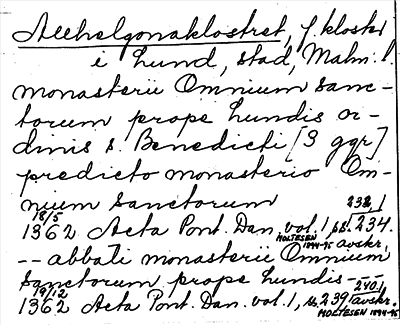 Allhelgonaklostret, f. kloster
i Lund, stad, Malm. l.
monasterii Omnium sanc-
torum prope Lundis or-
dinis s. Benedicti [3 ggr]
predicto monasterio Om-
nium sanctorum
18/5 232,
1362 Acta Pont. Dan. vol. 1, ss. 234.
MOLTESEN 1894-95 avskr.
-- abbati monasterii Omnium
sanctorum prope Lundis ---
19/12 240,
1362 Acta Pont. Dan. vol. 1, s. 239, avskr.
MOLTESEN 1894-95